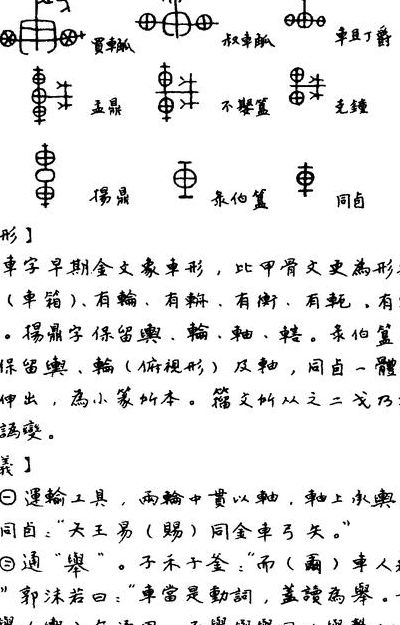 買車觚 叔車觚 車且丁爵
孟鼎 不𡢁簋 克鐘
揚鼎 彔伯簋 同卣
形】
車字早期金文象車形,比甲骨文更為形
(車箱)、有輪、有輈、有衡、有軛。有
。揚鼎字保留輿、輪、軸、轄。彔伯簋
保留輿、輪(俯視形)及軸,同卣一體
伸出,為小篆所本。籀文所从之二戈乃
譌變。
義】
㊀運輸工具,兩輪中貫以軸,軸上承輿
同卣:"天王易(賜)同金車弓矢。"
㊁通"舉"。子禾子釜:"而(爾)車人
"郭沫若曰:"車當是動詞,蓋讀為舉。